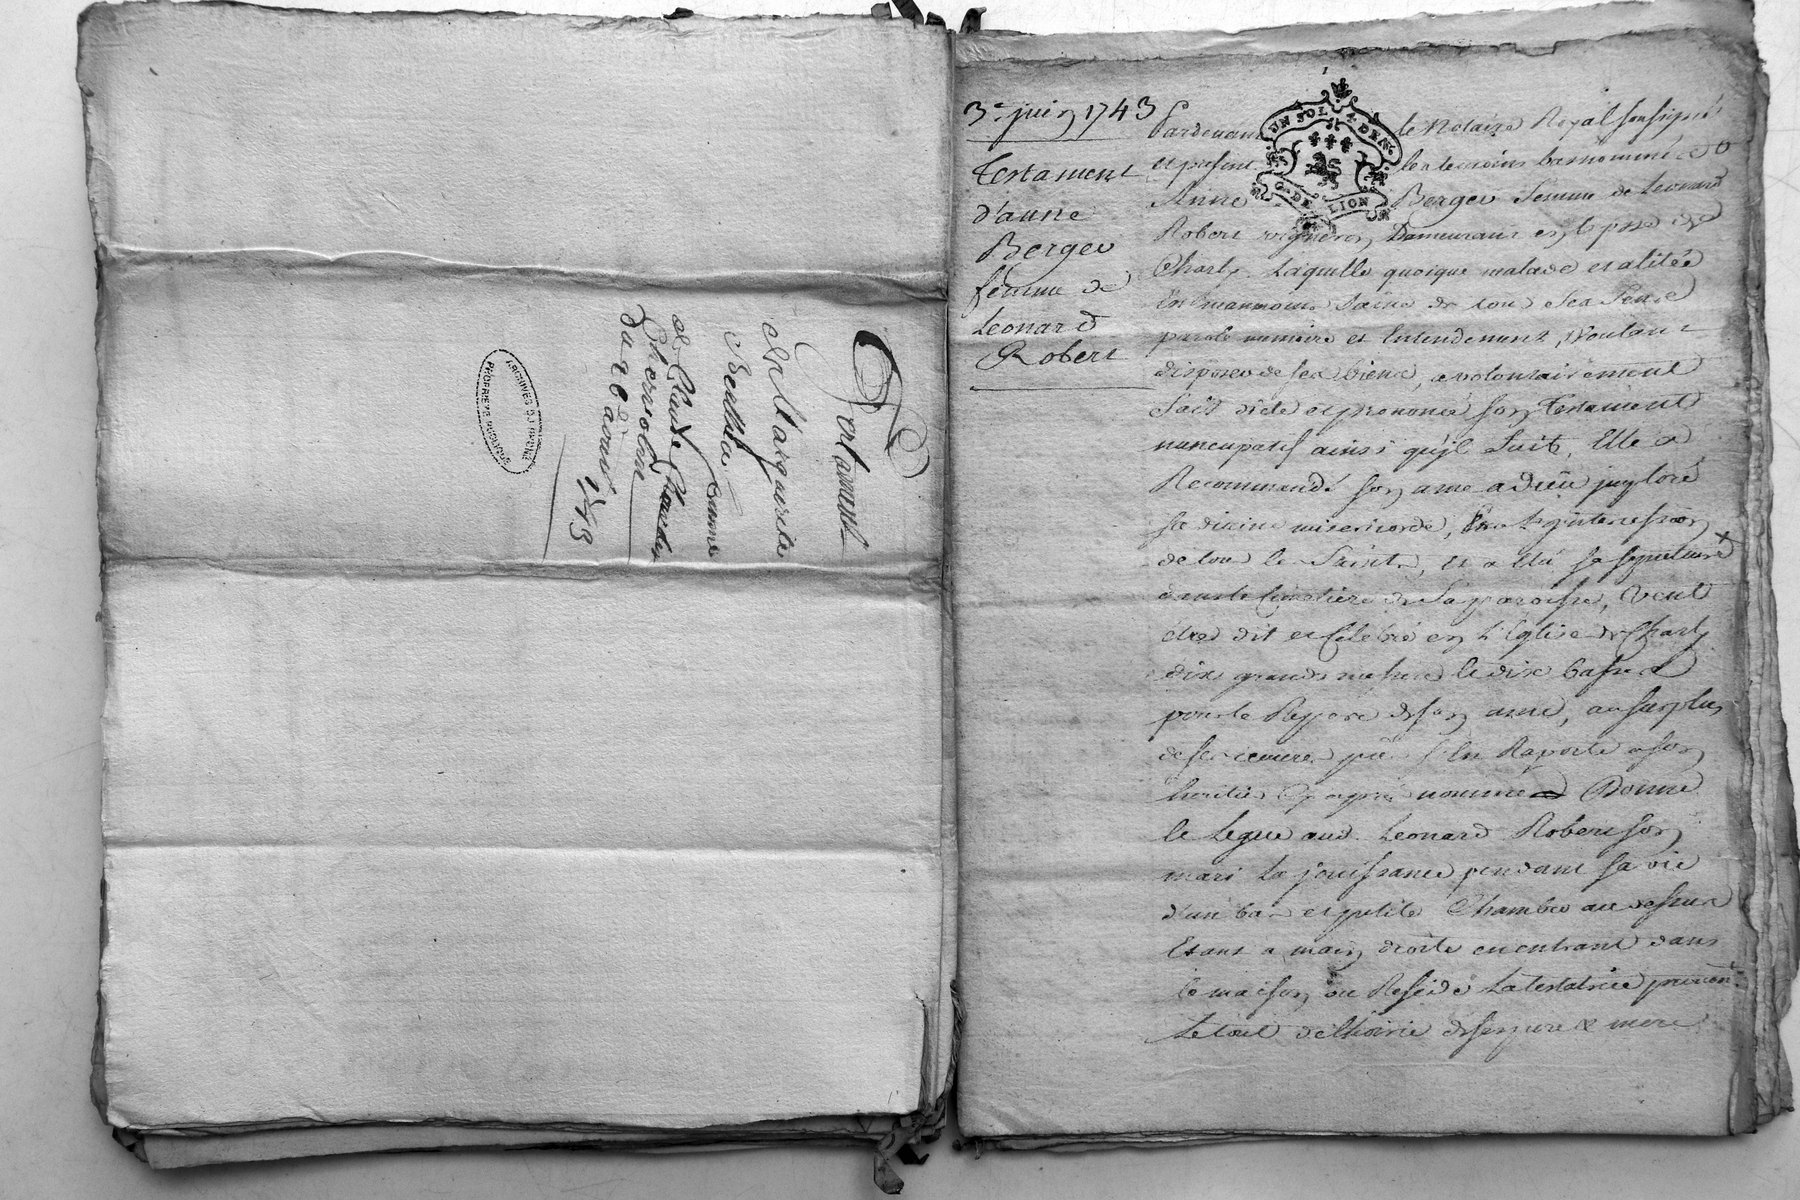 Testament
de Marguerite
Berthet femme
de Claude Chardon
Chervolin
du 26 aoust 1743
ARCHIVES DU RHONE
PROPRIETE PUBLIQUE
3e juin 1743
Testament
d'anne
Berger
femme de
Leonard
Robert
UN SOL 4 DEN
GEN DE LION
Pardevant le Notaire Royal soussigné
et present les temoins bas nommés
Anne Berger femme de Leonard
Robert vigneron Demeurant en la psse de
Charly. Laquelle quoique malade et alitée
Neanmoins saine de tous ses sens
parole memoire et Entendement, voulant
disposer de ses biens, a volontairement
fait dicté et prononcé son Testament
nuncupatif ainsi qu'il suit, Elle a
Recommandé son ame a dieu imploré
sa divine misericorde, L'intercession
de tous les Saints, et a Elu sa sepulture
dans le Cimetiere de sa paroisse, veut
être dit et Célébré en L'Eglise de Charly
dix grandes messes et dix basses
pour le Repos de son ame, au surplus
de ses œuvres pies s'En Raporte a son
heritier cy apres nommé Donne
et Legue aud. Leonard Robert son
mari La jouissance pendant sa vie
d'un bas et petite Chambre au dessus
Etant a main droite en entrant dans
la maison ou Reside La testatrice provenant
Le tout de l'hoirie de ses pere & mere